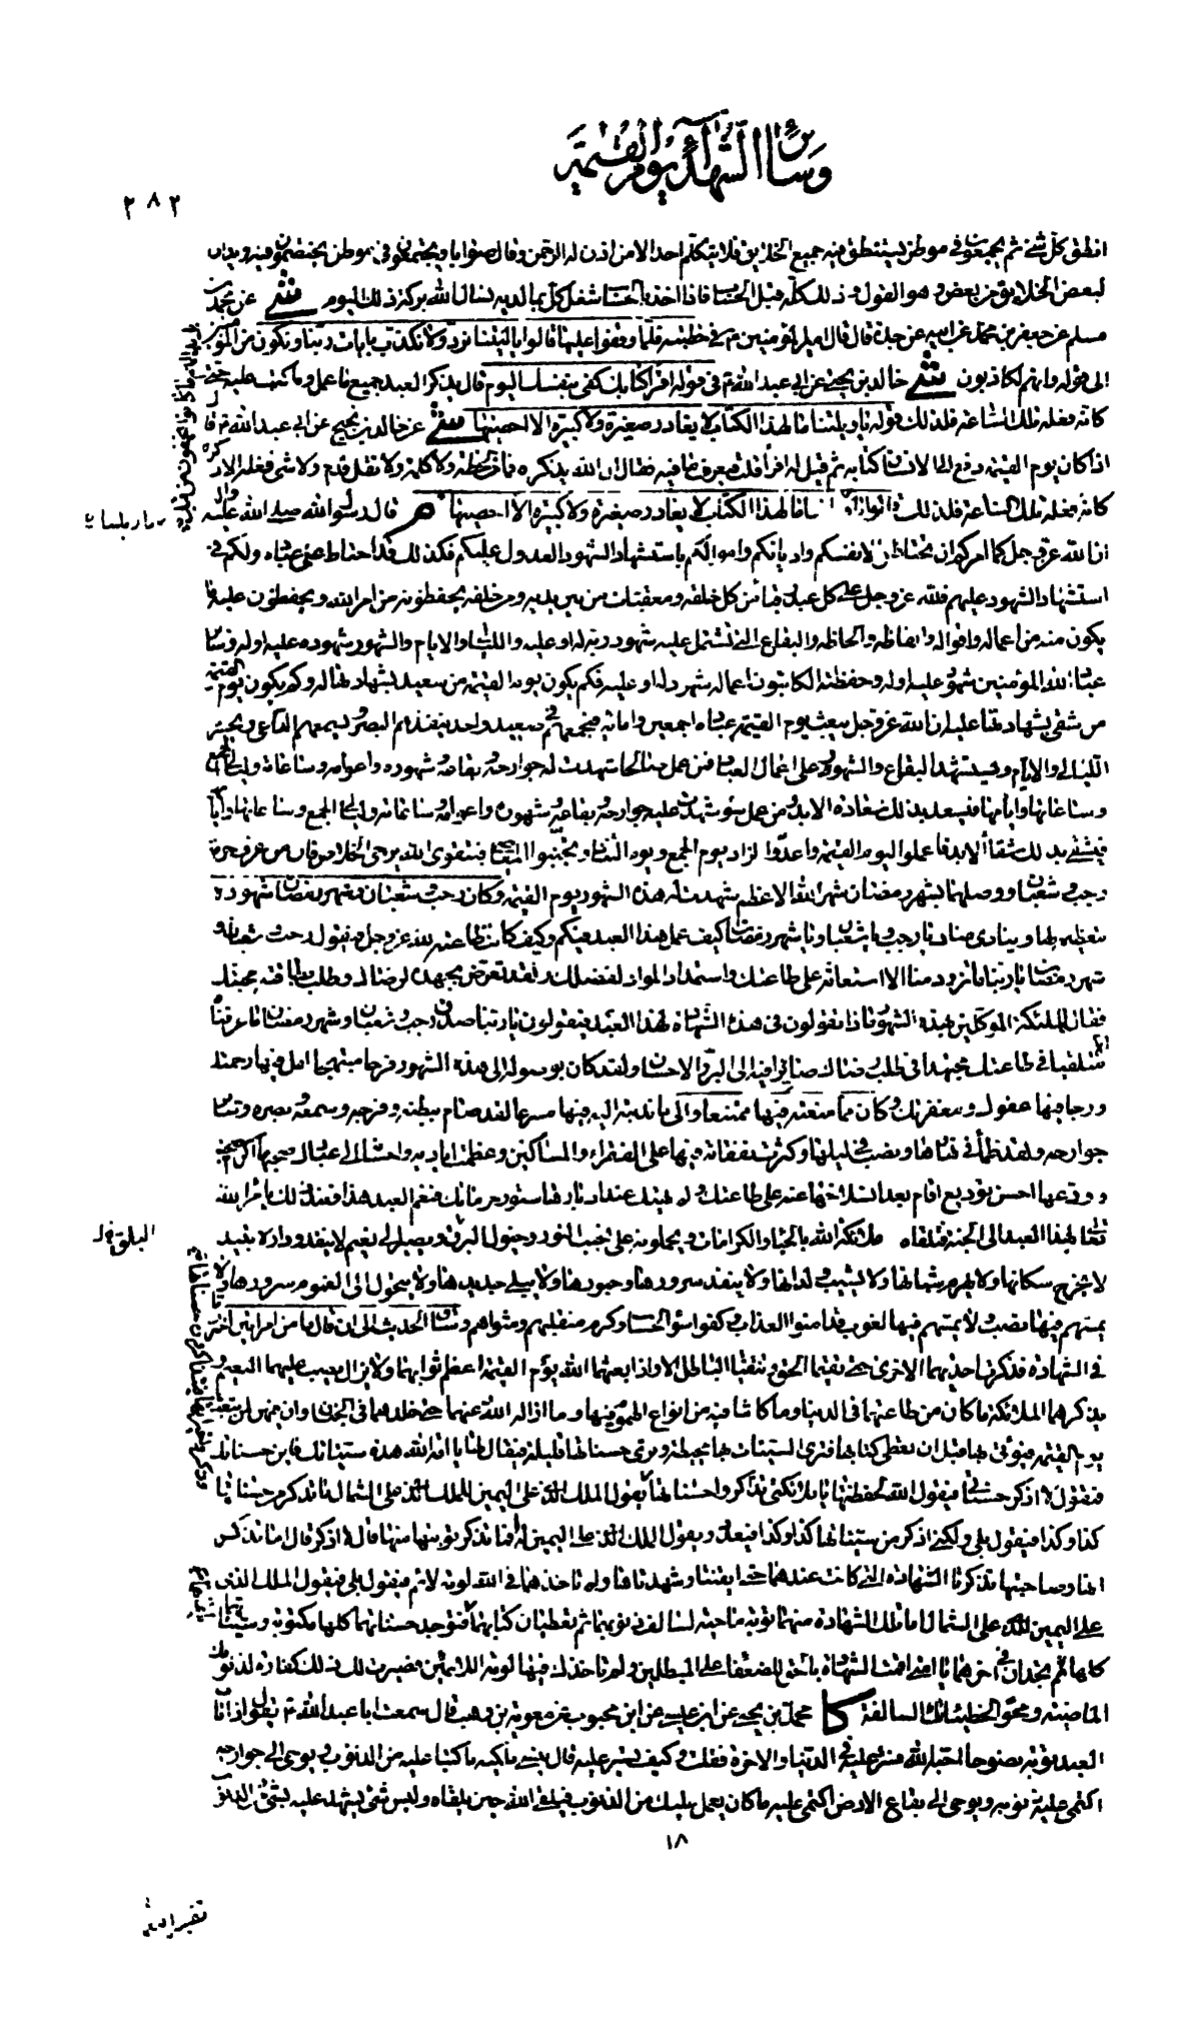 وسائر الشهداء يوم القيمة
٢٨٢
انطق كل شئ ثم يجتمعون في موطن يستنطق فيه جميع الخلايق فلا يتكلم احد الا من اذن له الرحمن وقال صوابا ويجتمعون في موطن يختصمون فيه ويدان
لبعض الخلايق من بعض وهو القول وذلك كله قبل الحساب فاذا اخذ في الحساب شغل كل بما لديه نسال الله بركة ذلك اليوم شئ عن محمد بن
مسلم عن جعفر بن محمد عن ابيه عن جده قال قال امير المؤمنين في خطبته فلما وقفوا عليها قالوا يا ليتنا نرد ولا نكذب بايات ربنا ونكون من المؤمنين
الى قوله وانهم لكاذبون شئ خالد بن يحيى عن ابي عبد الله في قوله اقرا كتابك كفى بنفسك اليوم قال يذكر العبد جميع ما عمل وما كتب عليه حتى
كانه فعله تلك الساعة فلذلك قوله يا ويلتنا ما لهذا الكتاب لا يغادر صغيرة ولا كبيرة الا احصيها شئ عن خالد بن نجيح عن ابي عبد الله قال
اذا كان يوم القيمة دفع الى الانسان كتابه ثم قيل له اقرأ قلت فيعرف ما فيه فقال ان الله يذكره فما من لحظة ولا كلمة ولا نقل قدم ولا شئ فعله الا ذكره
كانه فعله تلك الساعة فلذلك قالوا ما لهذا الكتاب لا يغادر صغيرة ولا كبيرة الا احصيها م قال رسول الله صلى الله عليه واله
ان الله عز وجل كما امركم ان تحتاطوا لانفسكم واديانكم واموالكم باستشهاد الشهود العدول عليكم فكذلك قد احتاط على عباده ولكم في
استشهاد الشهود عليهم فلله عز وجل على كل عبد رقباء من كل خلقه ومعقبات من بين يديه ومن خلفه يحفظونه من امر الله ويحفظون عليه ما
يكون منه من اعماله واقواله والفاظه والحاظه والبقاع التي تشتمل عليه شهود ربه له او عليه والليالي والايام والشهور شهوده عليه او له وسائر
عباد الله المؤمنين شهود عليه او له وحفظته الكاتبون اعماله شهود له او عليه فكم يكون يوم القيمة من سعيد بشهادتها له وكم يكون يوم القيمة
من شقى بشهادتها عليه ان الله عز وجل يبعث يوم القيمة عباده اجمعين وامائه فيجمعهم في صعيد واحد ينفذهم البصر ويسمعهم الداعي ويحشر
الليالي والايام ويستشهد البقاع والشهور على اعمال العباد فمن عمل صالحا شهدت له جوارحه وبقاعه وشهوره واعوامه وساعاته وليالي الجمع
وساعاتها وايامها فيسعد بذلك سعادة الابد ومن عمل سوء شهدت عليه جوارحه وبقاعه وشهوره واعوامه وساعاته وليالي الجمع وساعاتها وايامها
فيشقى بذلك شقاء الابد فاعملوا اليوم القيمة واعدوا الزاد ليوم الجمع ويوم التناد وتجنبوا المعاصي فبتقوى الله يرجى الخلاص فان من عرف حرمة
رجب وشعبان ووصلهما بشهر رمضان شهر الله الاعظم شهدت له هذه الشهور يوم القيمة وكان رجب وشعبان وشهر رمضان شهوده
بتعظيمه لها وينادى مناد يا رجب ويا شعبان ويا شهر رمضان كيف عمل هذا العبد فيكم وكيف كانت طاعته لله عز وجل فيقول رجب وشعبان و
شهر رمضان يا ربنا ما تزود منا الا استعانة على طاعتك واستمدادا لمواد فضلك ولقد تعرض بجهده لرضاك وطلب بطاقته محبتك
فقال للملئكة الموكلين بهذه الشهور ماذا تقولون في هذه الشهادة لهذا العبد فيقولون يا ربنا صدق رجب وشعبان وشهر رمضان ما عرفناه
الا متقلبا في طاعتك مجتهدا في طلب رضاك صايرا فيه الى البر والاحسان ولقد كان بوصوله الى هذه الشهور فرحا مبتهجا امل فيها رحمتك
ورجا فيها عفوك ومغفرتك وكان مما منعته فيها ممتنعا والى ما ندبته اليه فيها مسرعا لقد صام ببطنه وفرجه وسمعه وبصره وسائر
جوارحه ولقد ظمأ في نهارها ونصب في ليلها وكثرت نفقاته فيها على الفقراء والمساكين وعظمت اياديه واحسانه الى عبادك صحبها اكرم صحبة
وودعها احسن توديع اقام بعد انسلاخها عنه على طاعتك ولم يهتك عند ادبارها ستور حرماتك فنعم العبد هذا فعند ذلك يامر الله
تعالى بهذا العبد الى الجنة فتلقاه ملائكة الله بالحباء والكرامات ويحملونه على نجب النور وخيول البرق ويصير الى نعيم لا ينفد ودار لا تبيد
لا يخرج سكانها ولا يهرم شبانها ولا يشيب ولدانها ولا ينفد سرورها وحبورها ولا يبلى جديدها ولا يتحول الى الغموم سرورها لا
يمسهم فيها نصب ولا يمسهم فيها لغوب قد امنوا العذاب وكفوا سوء الحساب وكرم منقلبهم ومثواهم وساق الحديث الى ان قال ما من امراتين احترزتا
في الشهادة فذكرت احديهما الاخرى حتى تقيما الحق وتنفيا الباطل الا واذا بعثهما الله يوم القيمة اعظم ثوابهما ولا يزال يصب عليهما النعيم و
يذكرهما الملائكة ما كان من طاعتهما في الدنيا وما كانتا فيه من انواع الهموم فيها وما ازاله الله عنهما حتى خلدهما في الجنان وان فيهن لمن تبعث
يوم القيمة فيؤتى بها قبل ان تعطى كتابها فترى السيئات بها محيطة وترى حسناتها قليلة فيقال لها يا امة الله هذه سيئاتك فاين حسناتك
فتقول لا اذكر حسناتي فيقول الله لحفظتها يا ملائكتي تذاكروا حسناتها فيقول الملك الذى على اليمين للملك الذى على الشمال اما تذكر من حسناتها
كذا وكذا فيقول بلى ولكني اذكر من سيئاتها كذا وكذا فيعدد ويقول الملك الذى على اليمين له افما تذكر توبتها منها قال لا اذكر قال اما تذكر
انها وصاحبتها تذكرتا الشهادة التي كانت عندهما حتى ايقنتا وشهدتاها ولم تاخذهما في الله لومة لائم فيقول بلى فيقول الملك الذى
على اليمين للذى على الشمال اما تلك الشهادة منهما توبة ماحية لسالف ذنوبهما ثم تعطيان كتابهما فتوجد حسناتهما كلها مكتوبة وسيئاتهما
كلها ثم تجدان في اخرهما يا امتي اقمت الشهادة بالحق للضعفاء على المبطلين ولم تاخذك فيها لومة اللائمين فصيرت لك ذلك كفارة لذنوبك
الماضية ومحوا لخطيئاتك السالفة كا محمد بن يحيى عن ابن عيسى عن ابن محبوب عن معوية بن وهب قال سمعت ابا عبد الله يقول اذا تاب
العبد توبة نصوحا احبه الله فستر عليه في الدنيا والاخرة فقلت وكيف يستر عليه قال ينسى ملكيه ما كتبا عليه من الذنوب ويوحى الى جوارحه
اكتمى عليه ذنوبه ويوحى الى بقاع الارض اكتمى عليه ما كان يعمل عليك من الذنوب فيلقى الله حين يلقاه وليس شئ يشهد عليه بشئ من الذنوب
١٨